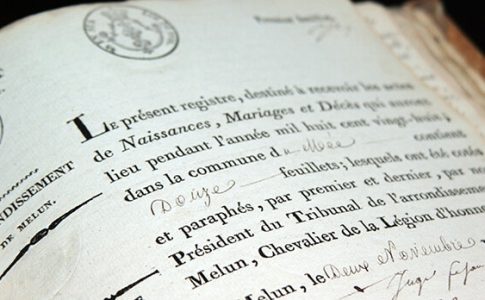 NDISSEMENT
DE MELUN.
LE présent registre, destiné à recevoir les actes
de Naissances, Mariages et Décès qui auront
lieu pendant l'année mil huit cent vingt-huit,
dans la commune d contient
Douze feuillets; lesquels ont été cotés
et paraphés, par premier et dernier, par no
Président du Tribunal de l'arrondissement
Melun, Chevalier de la Légion d'honne
Melun, le Deux Novembre